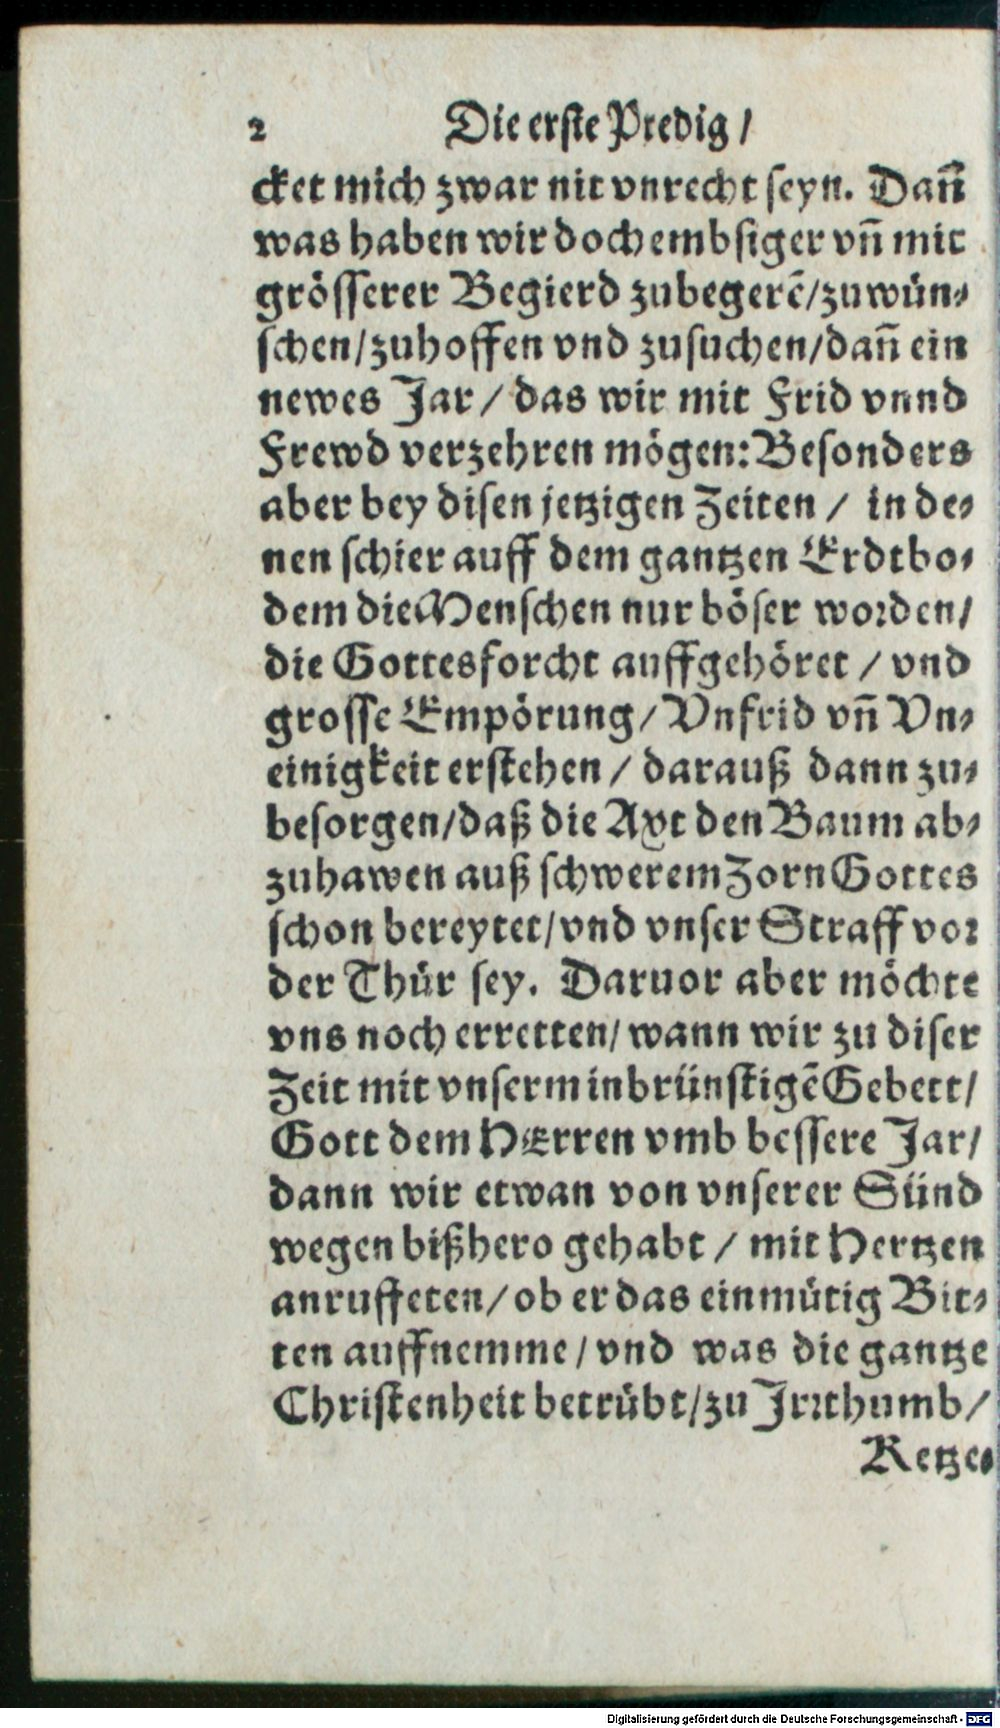 2 Die erste Predig /
cket mich zwar nit vnrecht seyn. Dañ
was haben wir doch embsiger vñ mit
grösserer Begierd zubegerẽ/zuwün⸗
schen/zuhoffen vnd zusuchen/dañ ein
newes Jar / das wir mit Frid vnnd
Frewd verzehren mögen: Besonders
aber bey disen jetzigen Zeiten / in de⸗
nen schier auff dem gantzen Erdtbo⸗
dem die Menschen nur böser worden/
die Gottesforcht auffgehöret / vnd
grosse Empörung/ Vnfrid vñ Vn⸗
einigkeit erstehen / darauß dann zu⸗
besorgen/daß die Axt den Baum ab⸗
zuhawen auß schwerem Zorn Gottes
schon bereytet/vnd vnser Straff vor
der Thür sey. Daruor aber möchte
vns noch erretten/ wann wir zu diser
Zeit mit vnserm inbrünstigẽ Gebett/
Gott dem HErren vmb bessere Jar/
dann wir etwan von vnserer Sünd
wegen bißhero gehabt / mit Hertzen
anruffeten/ ob er das einmütig Bit⸗
ten auffnemme / vnd was die gantze
Christenheit betrübt/zu Jrrthumb/
Ketze⸗
Digitalisierung gefördert durch die Deutsche Forschungsgemeinschaft - DFG